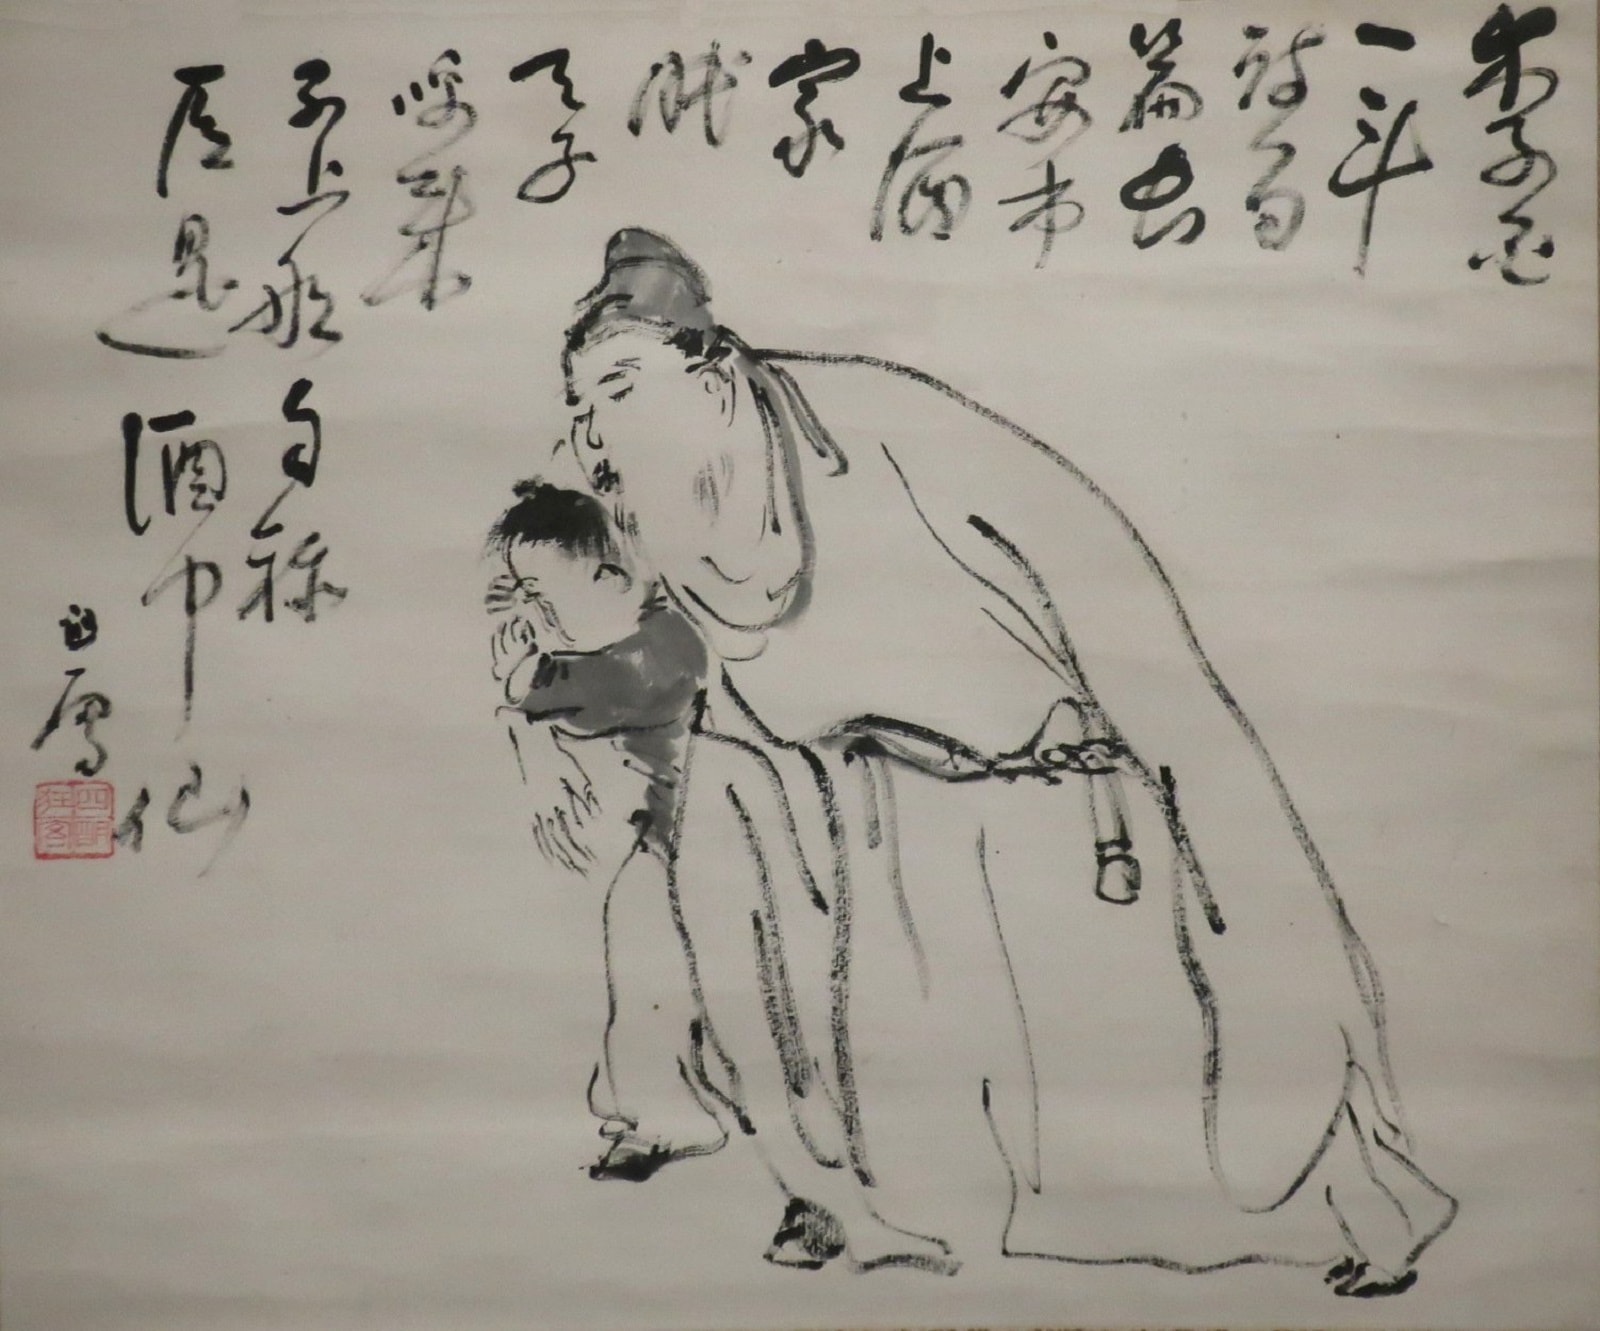 李白
一斗
詩百
篇長
安市
上酒
家
眠
天子
呼来
不上船自称
臣是酒中仙
四明狂客